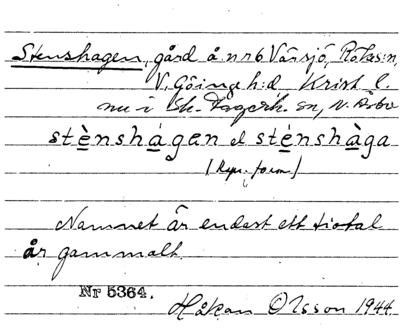 Stenshagen, gård å nr 6 Vårsjö, Röke sn,
V. Göinge h:d Krist l.
nu i Sk. Fagerh. sn, N. Åsbo
stènshágen el sténshàga
(Repr. form)
Namnet är endast ett tiotal
år gammalt.
Nr 5364.
Håkan Olsson 1944.